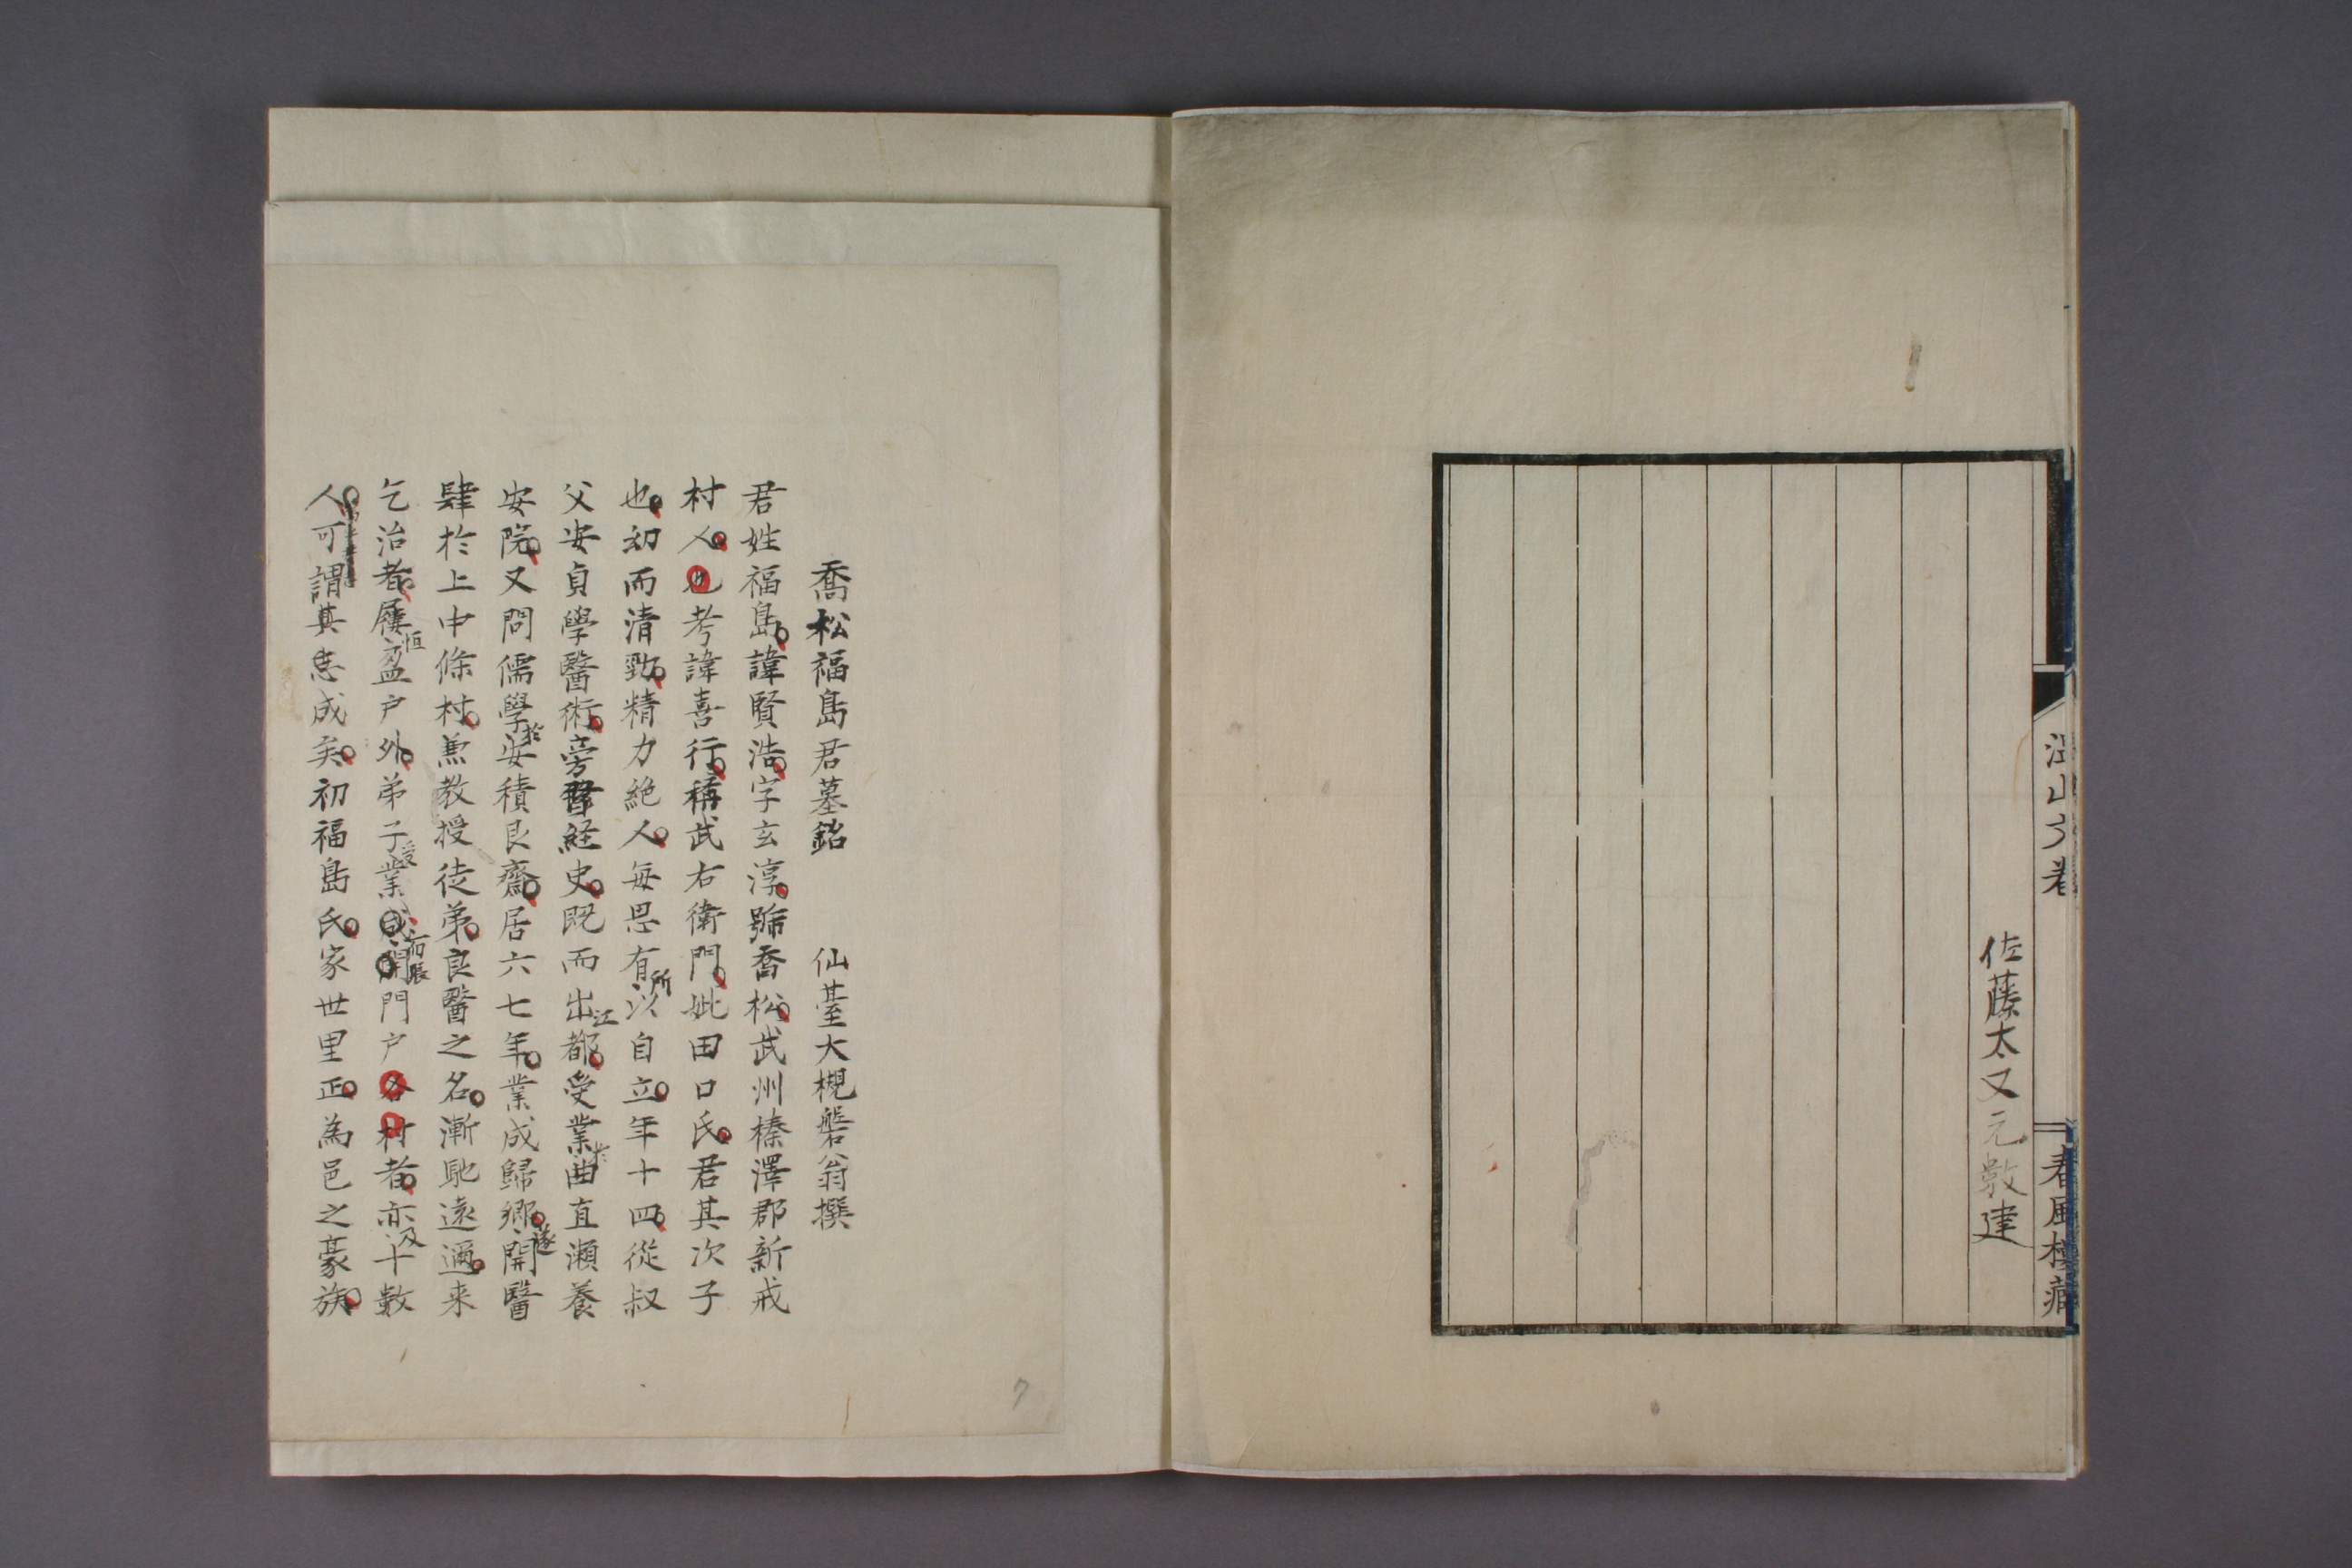 佐藤太又元敦建
春風樓藏
喬松福島君墓銘　仙臺大槻磐翁撰
君姓福島諱賢浩字玄淳號喬松武州榛澤郡新戒
村人也考諱喜行稱武右衛門妣田口氏君其次子
也幼而清勁精力絶人毎思有所以自立年十四從叔
父安貞學醫術旁習經史既而出江都受業於曲直瀬養
安院又問儒學於安積艮齋居六七年業成歸鄉遂開醫
肆於上中條村兼教授徒弟良醫之名漸馳遠邇来
乞治者屨恒盈戸外弟子受業成而張開門戸各村者亦及十數
人可謂其志成矣初福島氏家世里正為邑之豪族